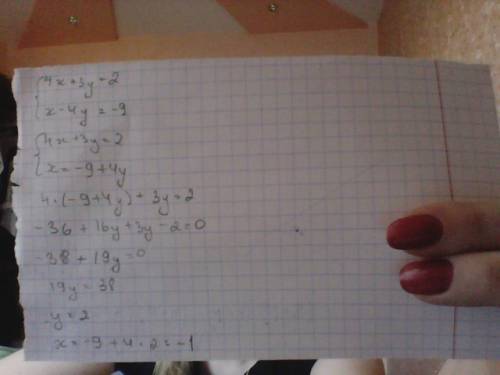 {4x+3y=2
{x-4y=-9
{4x+3y=2
{x=-9+4y
4·(-9+4y)+3y=2
-36+16y+3y-2=0
-38+19y=0
19y=38
y=2
x=-9+4·2=-1